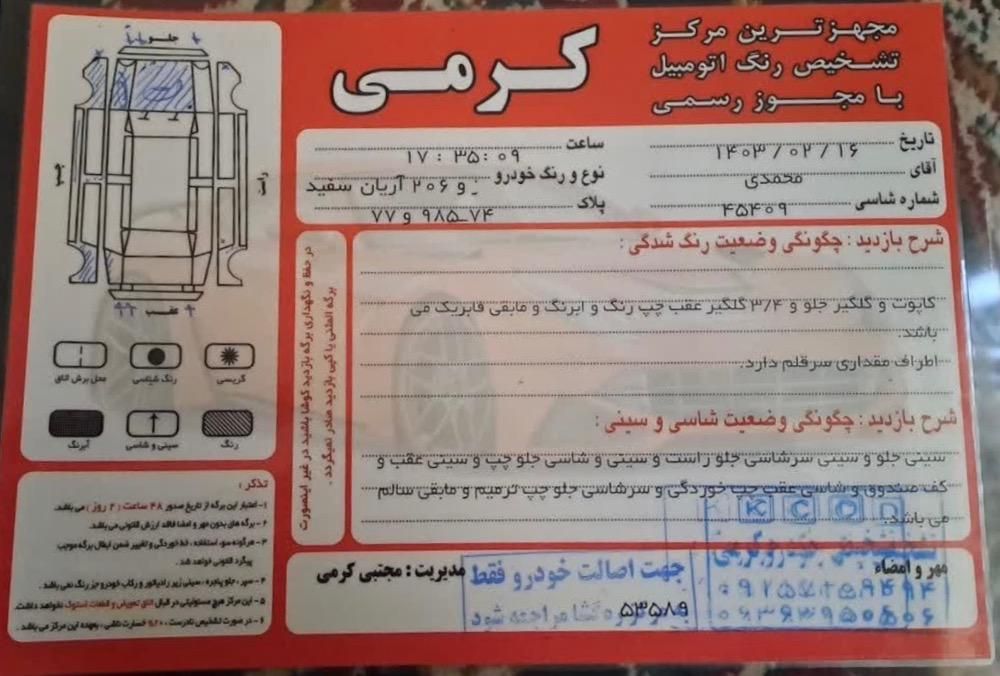 مجهزترین مرکز
تشخیص رنگ اتومبیل
با مجوز رسمی
کرمی
تاریخ ۱۴۰۳/۰۲/۱۶
ساعت ۱۷:۳۵:۰۹
آقای محمدی
نوع و رنگ خودرو پژو ۲۰۶ آریان سفید
شماره شاسی ۴۵۴۰۹
پلاک ۷۴-۹۸۵ و ۷۷
شرح بازدید : چگونگی وضعیت رنگ شدگی :
کاپوت و گلگیر جلو و ۳/۴ گلگیر عقب چپ رنگ و ابرنگ و مابقی فابریک می
باشد.
اطراف مقداری سرقلم دارد.
شرح بازدید : چگونگی وضعیت شاسی و سینی :
سینی جلو و سینی سرشاسی جلو راست و سینی و شاسی جلو چپ و سینی عقب و
کف صندوق و شاسی عقب چپ خوردگی و سرشاسی جلو چپ ترمیم و مابقی سالم
می باشد.
در حفظ و نگهداری برگه بازدید کوشا باشید در غیر اینصورت
برگه المثنی یا کپی بازدید صادر نمیگردد.
مهر و امضاء
مدیریت : مجتبی کرمی
۵۳۵۸۹
جهت اصالت خودرو فقط
مراجعه شود
جلو
چپ
راست
عقب
کریسی
رنگ شناسی
محل برش اتاق
رنگ
سینی و شاسی
آبرنگ
تذکر :
۱- اعتبار این برگه از تاریخ صدور ۴۸ ساعت (۲ روز) می باشد.
۲- برگه های بدون مهر و امضا فاقد ارزش قانونی می باشد.
۳- هرگونه سوء استفاده ، خط خوردگی و تغییر ضمن ابطال برگه موجب
پیگرد قانونی خواهد شد.
۴- سپر ، جلو پنجره ، سینی زیر رادیاتور و رکاب خودرو جزء رنگ نمی باشد.
۵- این مرکز هیچ مسئولیتی در قبال اتاق تعویض و قطعات استوک نخواهد داشت.
۶- در صورت تشخیص نادرست ، خسارت ناشی ، بعهده این مرکز می باشد.